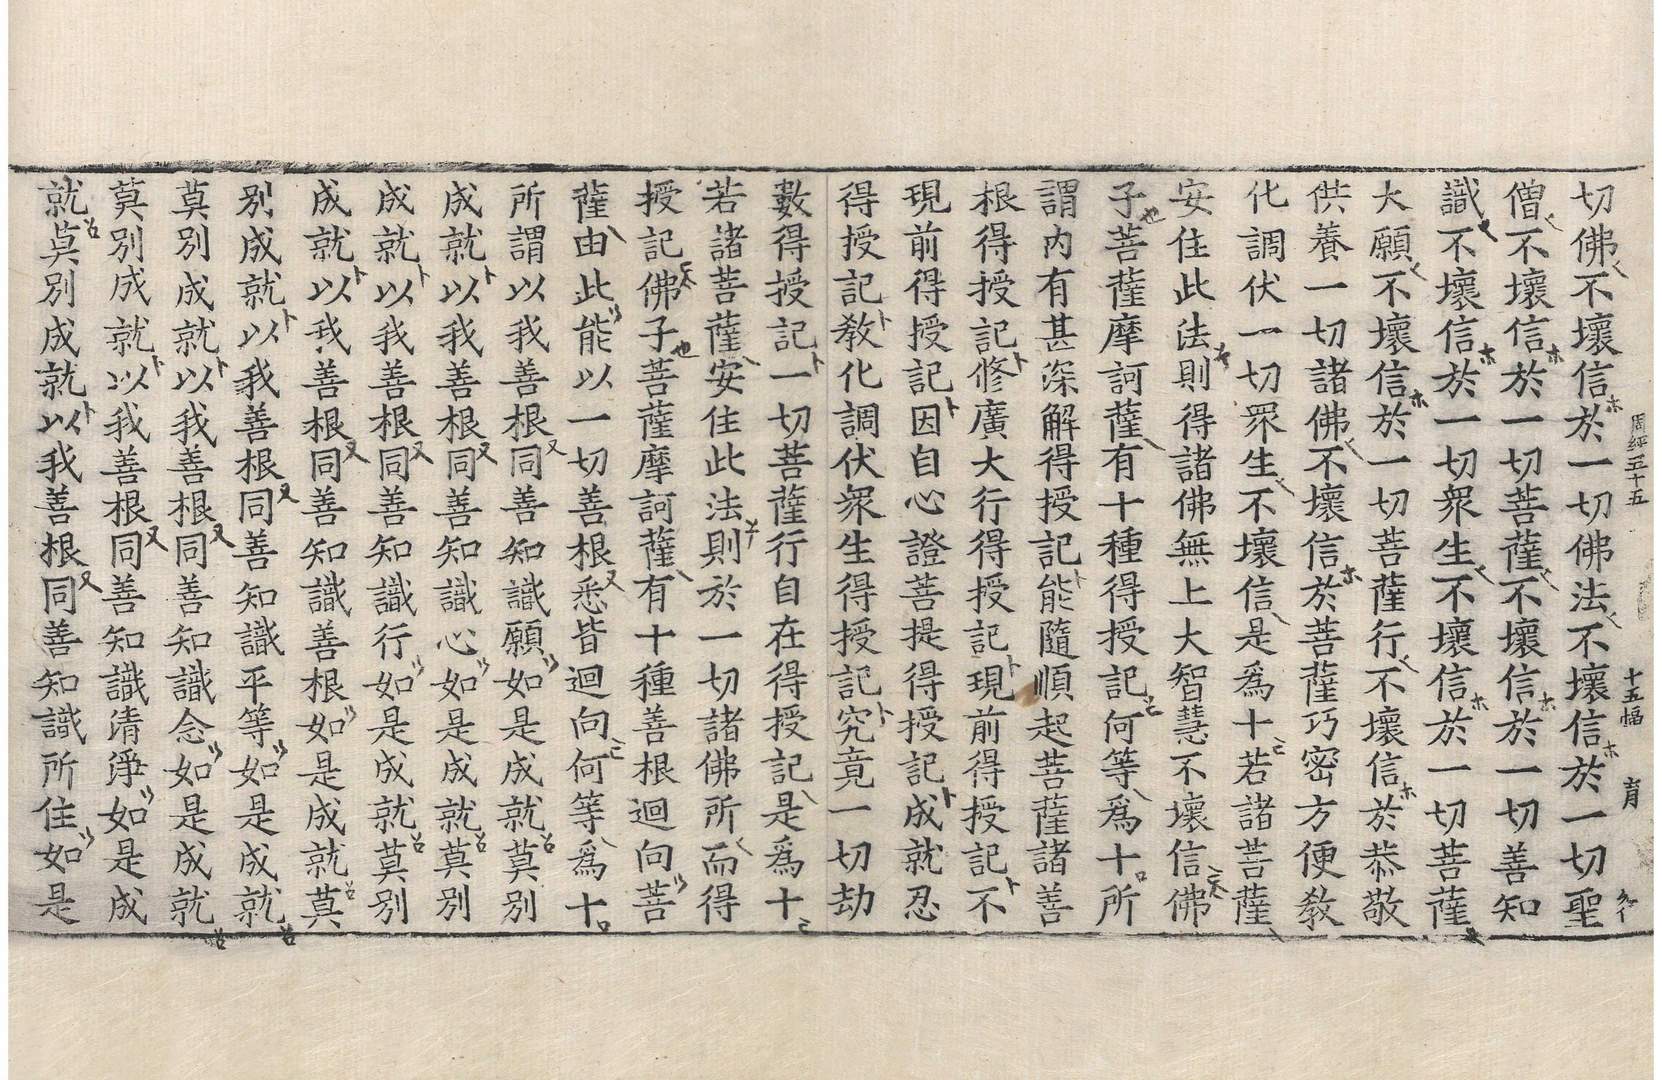 切佛不壞信於一切佛法不壞信於一切聖
僧不壞信於一切菩薩不壞信於一切善知
識不壞信於一切衆生不壞信於一切菩薩
大願不壞信於一切菩薩行不壞信於恭敬
供養一切諸佛不壞信於菩薩巧密方便教
化調伏一切眾生不壞信是為十若諸菩薩
安住此法則得諸佛無上大智慧不壞信佛
子菩薩摩訶薩有十種得授記何等為十所
謂內有甚深解得授記能隨順起菩薩諸善
根得授記修廣大行得授記現前得授記不
現前得授記因自心證菩提得授記成就忍
得授記教化調伏眾生得授記究竟一切劫
數得授記一切菩薩行自在得授記是為十
若諸菩薩安住此法則於一切諸佛所而得
授記佛子菩薩摩訶薩有十種善根迴向菩
薩由此能以一切善根悉皆迴向何等為十
所謂以我善根同善知識願如是成就莫別
成就以我善根同善知識心如是成就莫別
成就以我善根同善知識行如是成就莫別
成就以我善根同善知識善根如是成就莫
別成就以我善根同善知識平等如是成就
莫別成就以我善根同善知識念如是成就
莫別成就以我善根同善知識清淨如是成
就莫別成就以我善根同善知識所住如是
周經五十五 十五幅 育